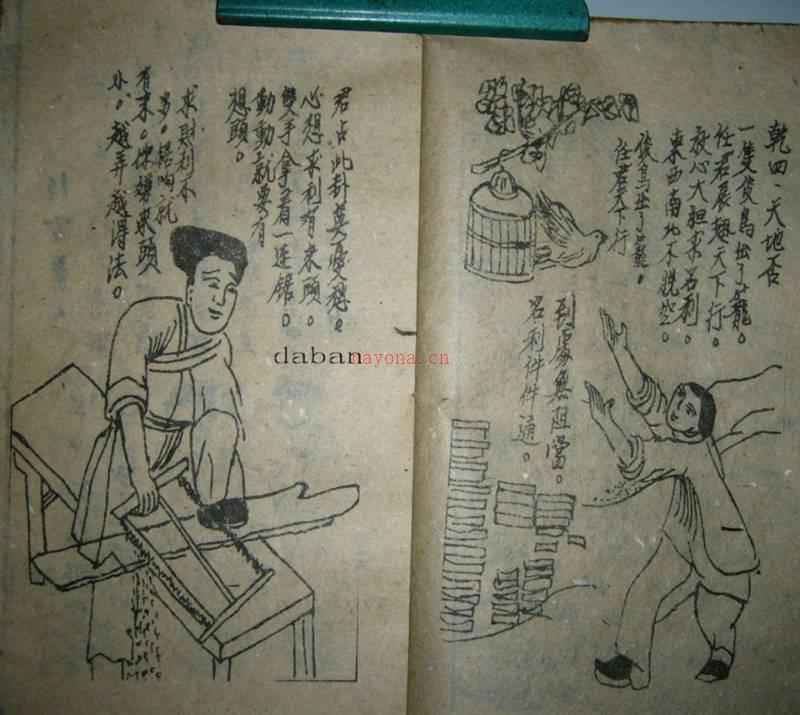 乾四、天地否
一隻俊鳥出了籠。
任君展翅天下行。
放心大胆求名利。
東西南北不脱空。
俊鳥出了籠。
任君天下行
到處無阻當。
名利件件通。
君占此卦莫憂愁。
心想求利有來頭。
雙手拿着一連鋸。
動動就要有
想頭。
求財利不
多。响就
有来。你嫌来頭
小。越弄越得法。
daban nayona.cn